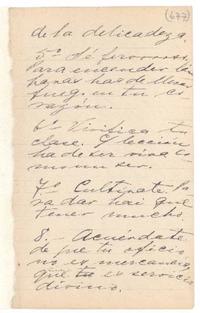 (677)
de la delicadeza.
5º Sé fervorosa
Para encender
has de llevar
fuego en tu co
razón.
6º Vivifica tu
clase. Y lección
ha de ser viva co
mo un ser.
7º Cultívate Pa
ra dar hai que
tener mucho.
8. - Acuérdate
de que tu oficio
no es mercancía,
que tu es servicio
divino.